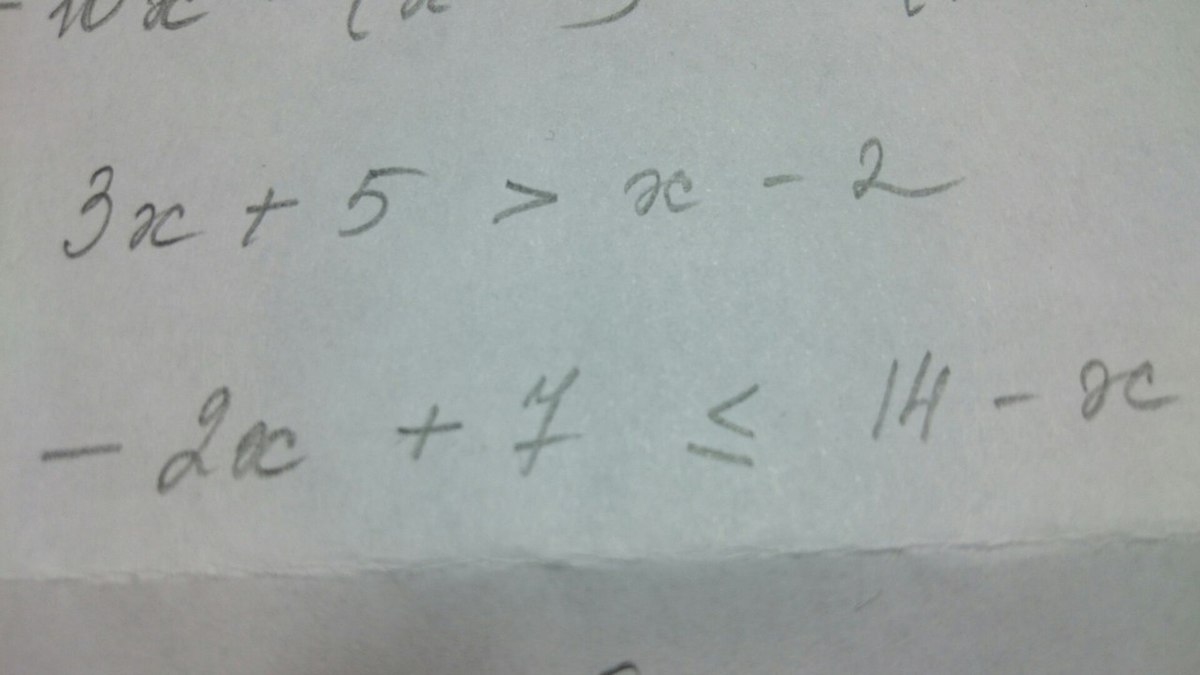 3x + 5 > x - 2
- 2x + 7 ≤ 14 - x